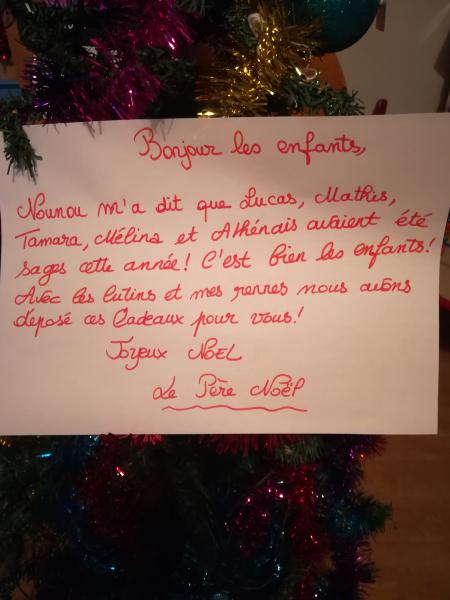 Bonjour les enfants,
Nounou m'a dit que Lucas, Mathis,
Tamara, Mélina et Athénais avaient été
sages cette année! C'est bien les enfants!
Avec les lutins et mes rennes nous avons
déposé ces Cadeaux pour vous!
Joyeux NOEL
Le Père Noël